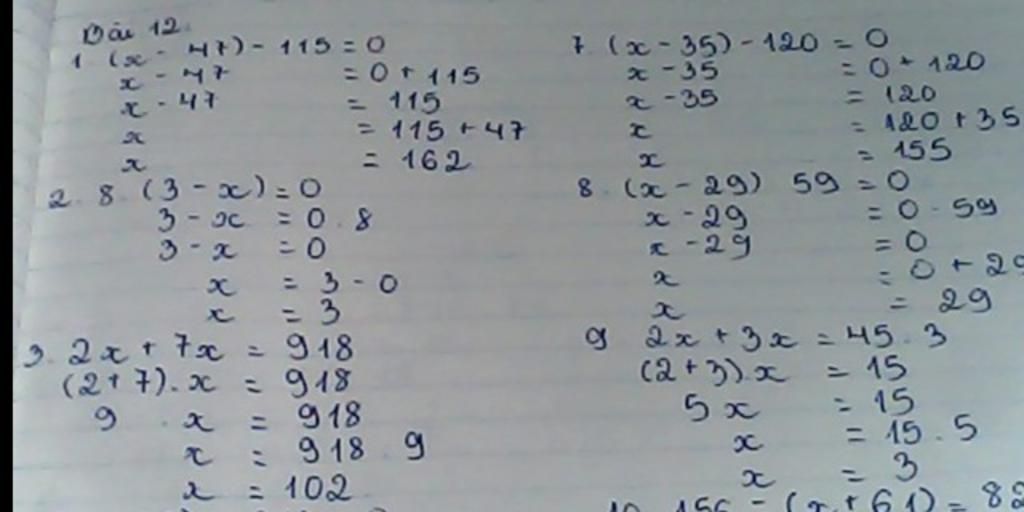 Bài 12.
1. (x - 47) - 115 = 0
x - 47 = 0 + 115
x - 47 = 115
x = 115 + 47
x = 162
2. 8. (3 - x) = 0
3 - x = 0 . 8
3 - x = 0
x = 3 - 0
x = 3
3. 2x + 7x = 918
(2+7).x = 918
9 . x = 918
x = 918 . 9
x = 102
7. (x - 35) - 120 = 0
x - 35 = 0 + 120
x - 35 = 120
x = 120 + 35
x = 155
8. (x - 29) 59 = 0
x - 29 = 0 . 59
x - 29 = 0
x = 0 + 29
x = 29
9 2x + 3x = 45 . 3
(2+3).x = 15
5x = 15
x = 15 . 5
x = 3
10. 156 - (x + 61) = 82